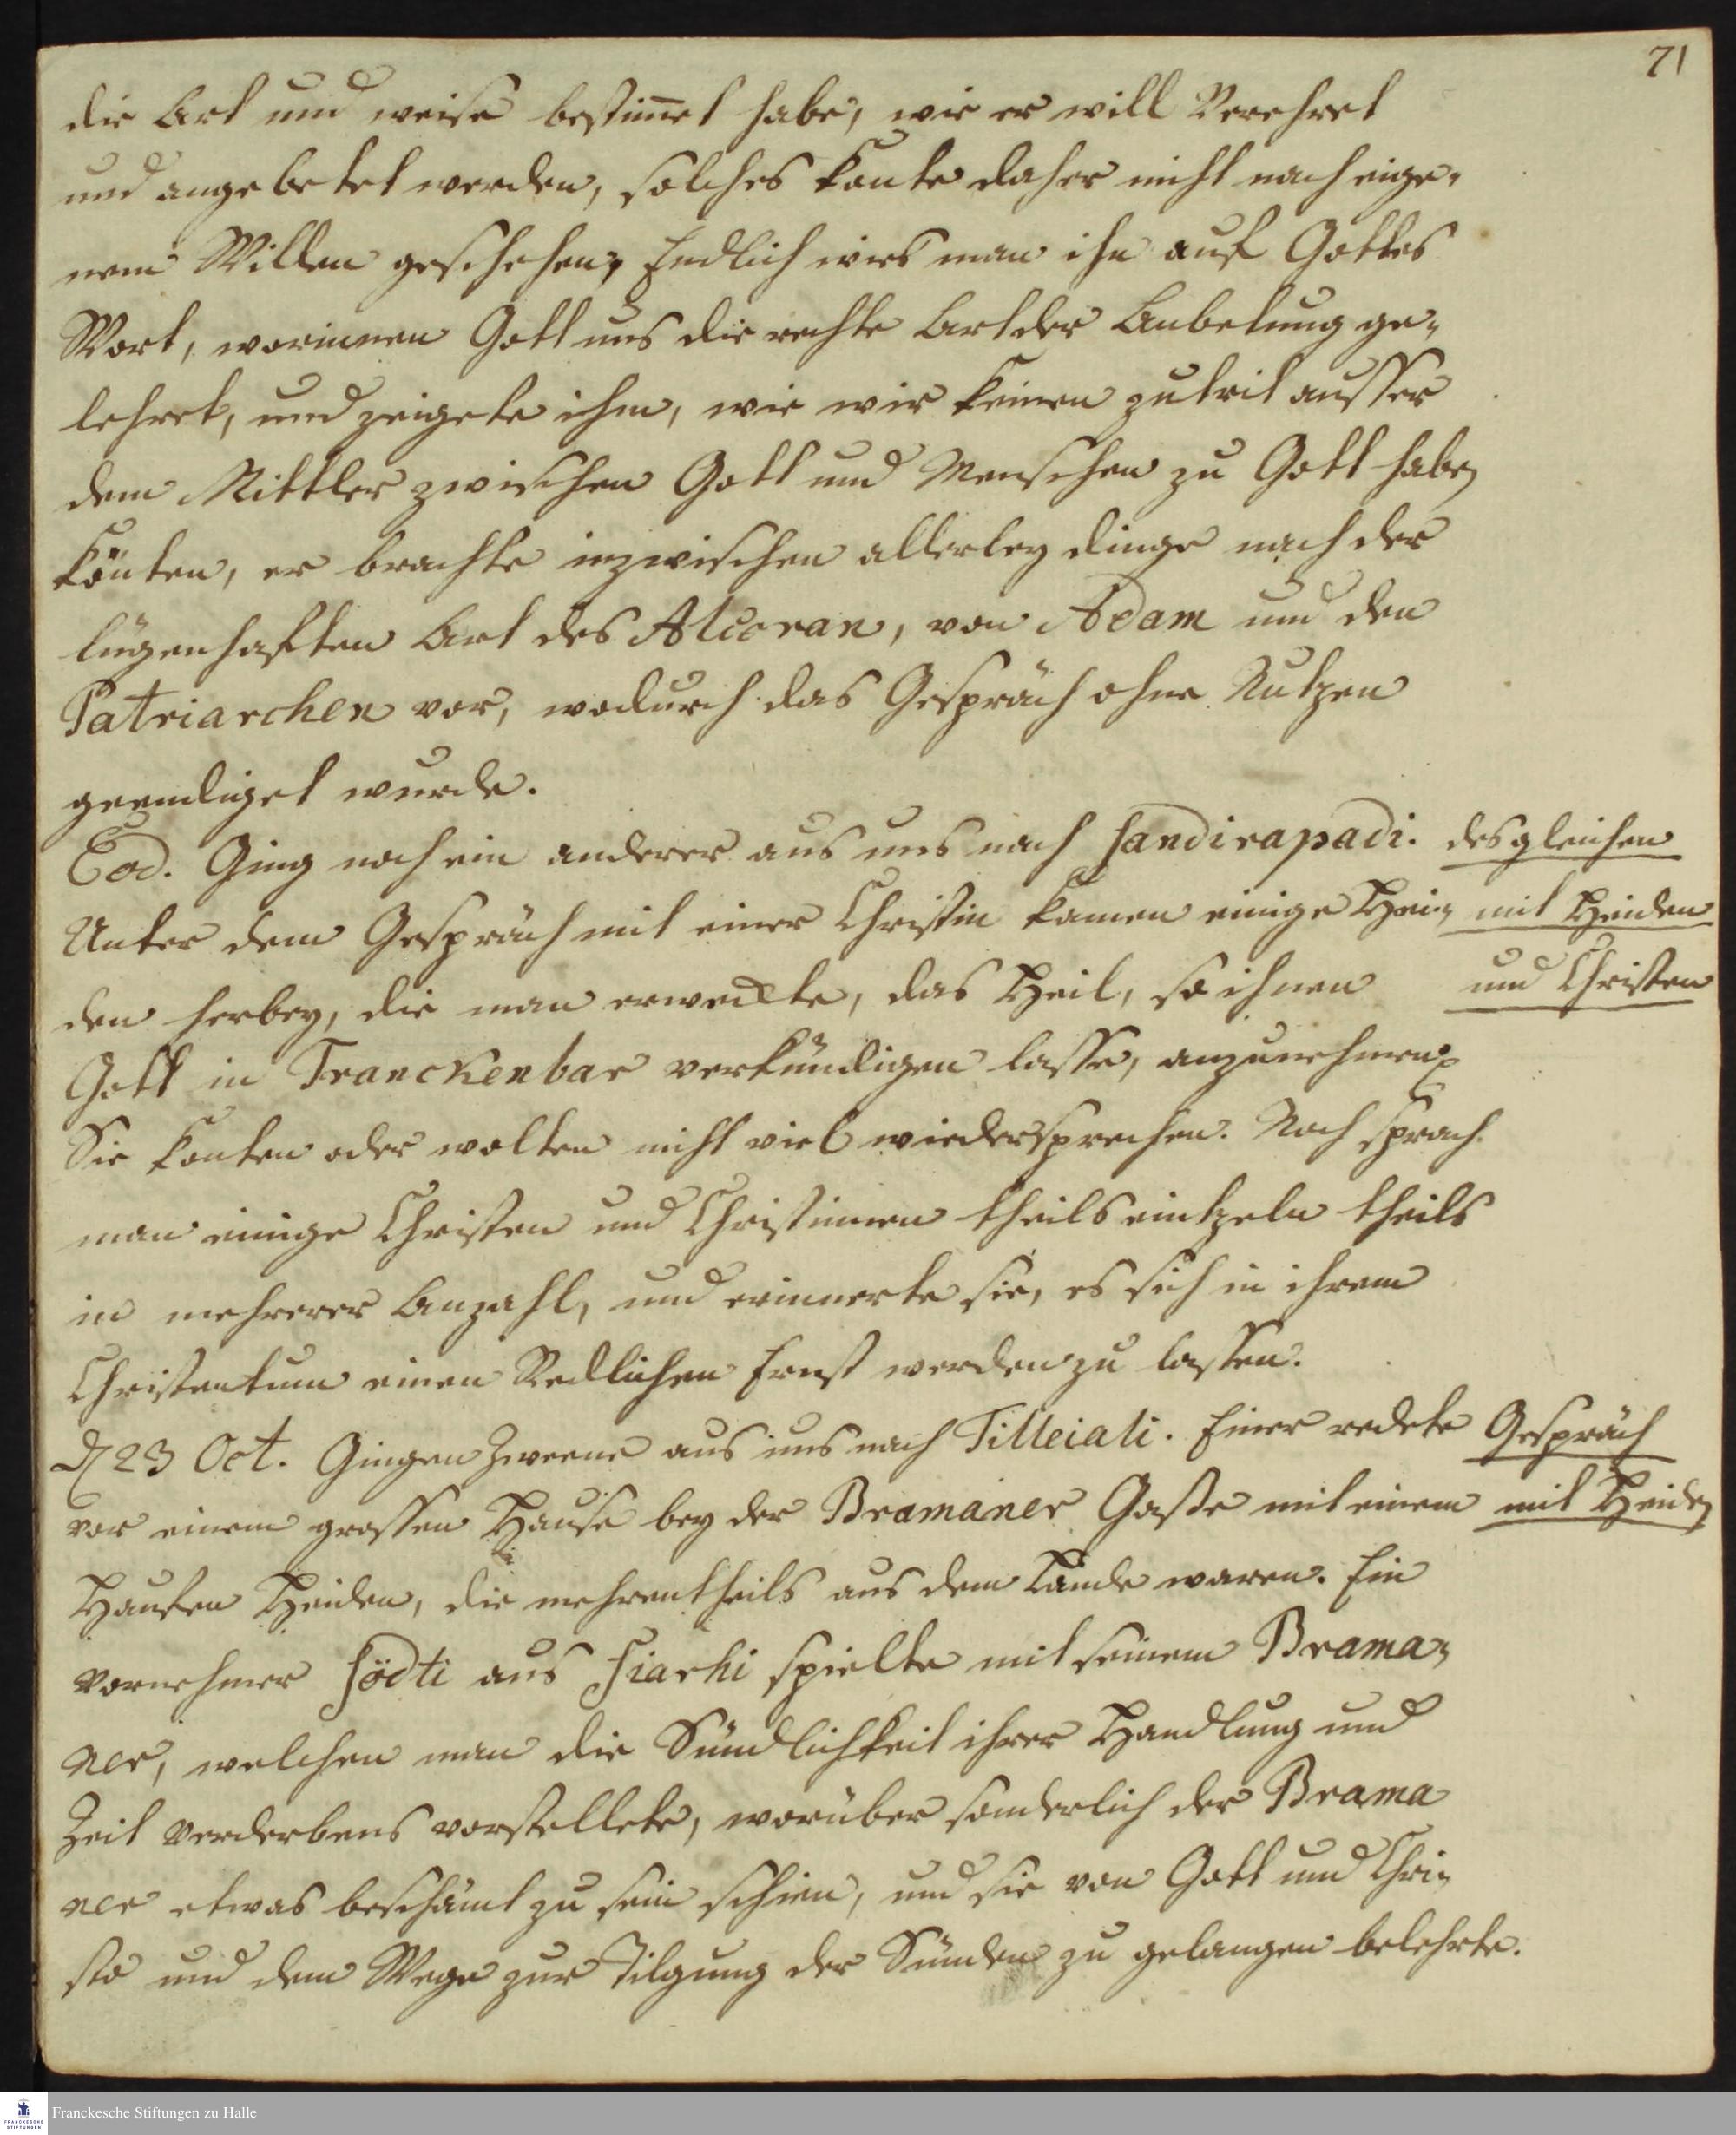 71
die Art und weise bestim̄et habe, wie er will Verehret
und angebetet werden, solches konte daher nicht nach eige-
nem Willen geschehen, Endlich wies man ihn auf Gottes
Wort, worinnen Gott uns die rechte Art der Anbetung ge-
lehret, und zeigete ihm, wie wir keinen zutrit ausser
dem Mittler zwischen Gott und Menschen zu Gott haben
könten, er brachte inzwischen allerley dinge nach der
lügenhaften Art des Alcoran, von Adam und den
Patriarchen vor, wodurch das Gespräch ohne Nutzen
geendiget wurde.
Eod. Ging noch ein anderer aus uns nach Sandirapadi.
desgleichen
Unter dem Gespräch mit einer Christin kamen einige Hei-
mit Heiden
den herbey, die man erweckte, das Heil, so ihnen
und Christen
Gott in Tranckenbar verkündigen lasse, anzunehmen
Sie konten oder wolten nicht viel wiedersprechen. Noch sprach
man einige Christen und Christinnen theils eintzeln theils
in mehrerer Anzahl, und erinnerte sie, es sich in ihrem
Christentum einen Redlichen Ernst werden zu lassen.
d 23 Oct. Gingen Zweene aus uns nach Tilleiali. Einer redete
Gespräch
vor einem grossen Hause bey der Bramaner Gasse mit einem
mit Heiden
Haufen Heiden, die mehrentheils aus dem Lande waren. Ein
vornehmer Södti aus Siarhi spielte mit seinem Brama-
ner, welchen man die Sündlichkeit ihrer Handlung und
Zeit verderbens vorstellete, worüber sonderlich der Brama
ner etwas beschämt zu sein schien, und sie von Gott und Chri-
sto und dem Wege zur Tilgung der Sünden zu gelangen belehrte.
Franckesche Stiftungen zu Halle